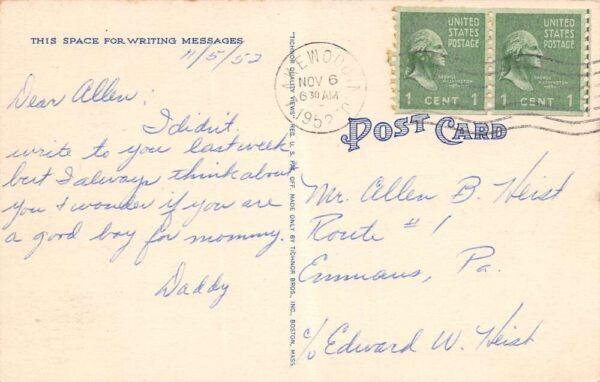 THIS SPACE FOR WRITING MESSAGES
11/5/52
Dear Allen:
I didn't
write to you last week
but I always think about
you & wonder if you are
a good boy for mommy.
Daddy
"TICHNOR QUALITY VIEWS" REG. U. S. PAT. OFF. MADE ONLY BY TICHNOR BROS., INC., BOSTON, MASS.
NOV 6
6 30 AM
1952
UNITED
STATES
POSTAGE
GEORGE
WASHINGTON
1 CENT 1
UNITED
STATES
POSTAGE
GEORGE
WASHINGTON
1 CENT 1
POST CARD
Mr. Allen B. Heist
Route #1
Emmaus, Pa.
c/o Edward W. Heist